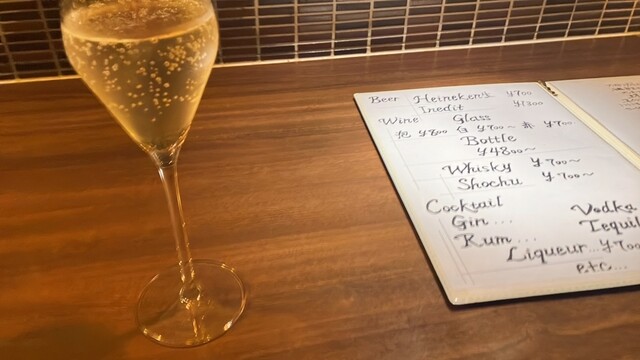 Beer Heineken's ¥700
Inedit ¥1300
Wine Glass
泡 ¥800 白 ¥700～ 赤 ¥700
Bottle
¥4800～
Whisky ¥700～
Shochu ¥700～
Cocktail
Gin... Vodka
Rum... Tequil
Liqueur...¥700
etc...